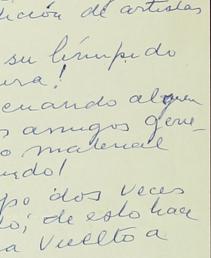 dición de artistas
su límpido
ura!
cuando alguien
s amigos gene-
o material
undo!
po dos veces
do; de esto hace
a vuelto a